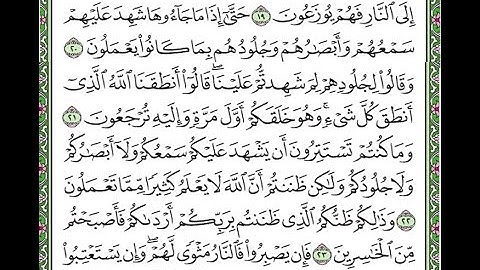 إِلَى النَّارِ فَهُمْ يُوزَعُونَ ١٩ حَتَّىٰ إِذَا مَا جَاءُوهَا شَهِدَ عَلَيْهِمْ
سَمْعُهُمْ وَأَبْصَارُهُمْ وَجُلُودُهُم بِمَا كَانُوا يَعْمَلُونَ ٢٠
وَقَالُوا لِجُلُودِهِمْ لِمَ شَهِدتُّمْ عَلَيْنَا ۖ قَالُوا أَنطَقَنَا اللَّهُ الَّذِي
أَنطَقَ كُلَّ شَيْءٍ ۚ وَهُوَ خَلَقَكُمْ أَوَّلَ مَرَّةٍ وَإِلَيْهِ تُرْجَعُونَ ٢١
وَمَا كُنتُمْ تَسْتَتِرُونَ أَن يَشْهَدَ عَلَيْكُمْ سَمْعُكُمْ وَلَا أَبْصَارُكُمْ
وَلَا جُلُودُكُمْ وَلَٰكِن ظَنَنتُمْ أَنَّ اللَّهَ لَا يَعْلَمُ كَثِيرًا مِّمَّا تَعْمَلُونَ
٢٢ وَذَٰلِكُمْ ظَنُّكُمُ الَّذِي ظَنَنتُم بِرَبِّكُمْ أَرْدَاكُمْ فَأَصْبَحْتُم
مِّنَ الْخَاسِرِينَ ٢٣ فَإِن يَصْبِرُوا فَالنَّارُ مَثْوًى لَّهُمْ ۖ وَإِن يَسْتَعْتِبُوا